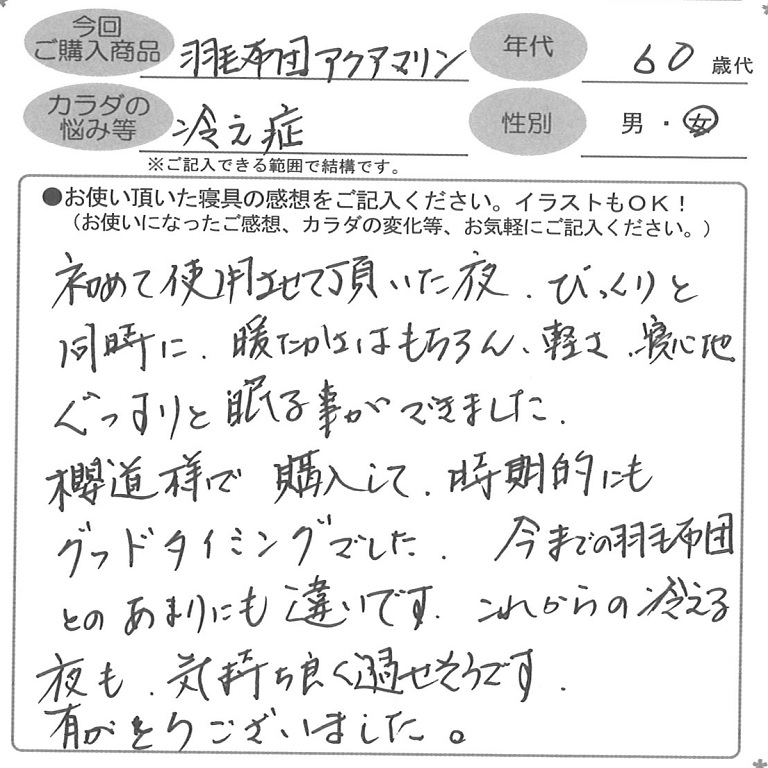 今回
ご購入商品
羽毛布団アクアマリン
年代
60歳代
カラダの
悩み等
冷え症
性別
男・女
※ご記入できる範囲で結構です。
●お使い頂いた寝具の感想をご記入ください。イラストもOK！
（お使いになったご感想、カラダの変化等、お気軽にご記入ください。）
初めて使用させて頂いた夜、びっくりと
同時に、暖たかさはもちろん、軽さ、寝心地
ぐっすりと眠る事ができました。
櫻道様で購入して、時期的にも
グッドタイミングでした。今までの羽毛布団
とのあまりにも違いです。これからの冷える
夜も、気持ち良く過せそうです。
有がとうございました。